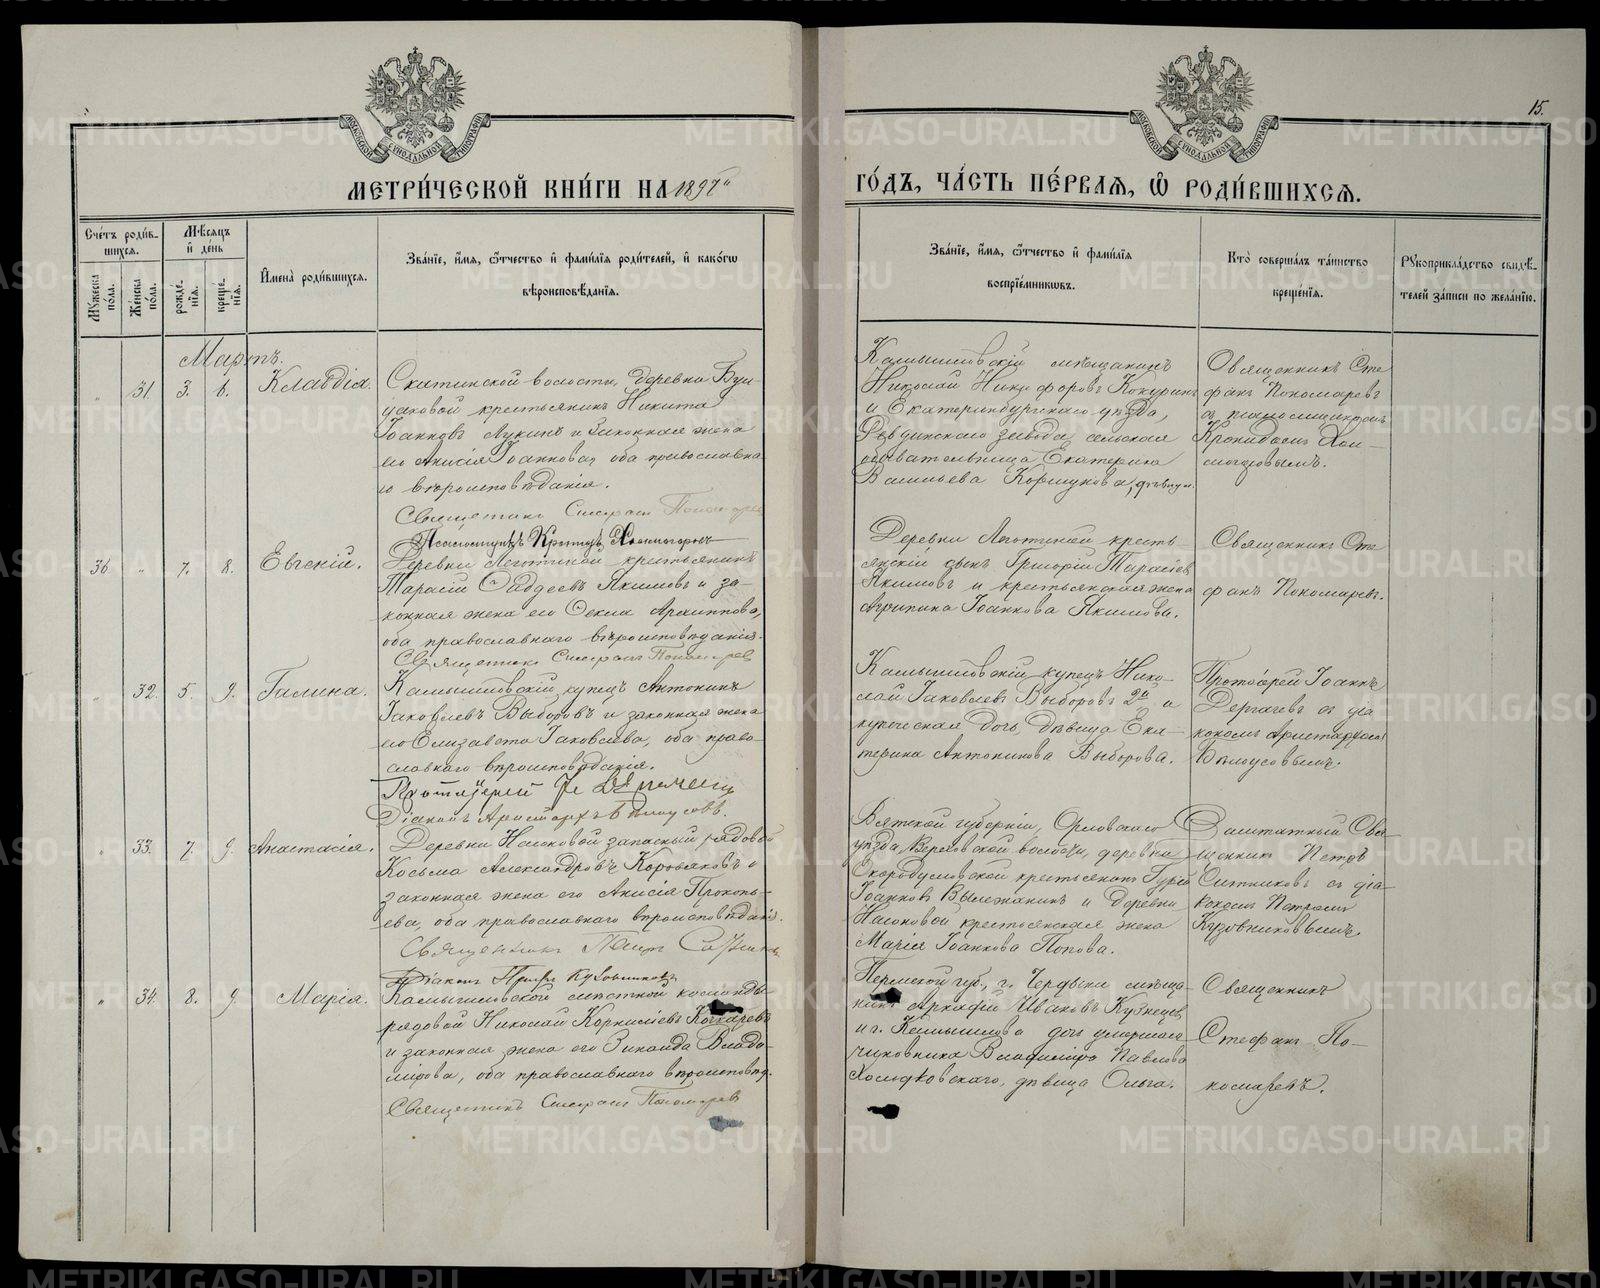 15.
МОСКОВСКОЙ СѴНОДАЛЬНОЙ ТИПОГРАФІИ
МОСКОВСКОЙ СѴНОДАЛЬНОЙ ТИПОГРАФІИ
МЕТРИ́ЧЕСКОЙ КНИ́ГИ НА 1897
ГО́ДЪ, ЧА́СТЬ ПЕ́РВАѦ, Ѡ҆ РОДИ́ВШИХСѦ.
Сче́тъ роди́в-
шихсѧ.
Мꙋ́жеска по́ла.
Же́нска по́ла.
Мѣ́сѧцъ и҆ де́нь
рожде́-нїѧ.
креще́-нїѧ.
И҆мена̀ роди́вшихсѧ.
Зва́нїе, и҆́мѧ, ѻ҆́тчество и҆ фами́лїѧ роди́телей, и҆ како́гѡ
вѣроисповѣ́данїѧ.
Зва́нїе, и҆́мѧ, ѻ҆́тчество и҆ фами́лїѧ
воспрїе́мникѡвъ.
Кто̀ соверша́лъ та́инство
креще́нїѧ.
Рꙋкоприкла́дство свидѣ́-
телей за́писи по жела́нїю.
Мартъ.
31. 3. 6. Клавдія.
Скатинской волости, деревни
крестьянинъ Никита
Іоанновъ Лукинъ и законная жена
его Анисія Іоаннова, оба православна
го вѣроисповѣданія.
Священникъ Стефанъ Пономарев
Псаломщикъ Кронидъ Холмогоровъ
Камышловскій мѣщанинъ
Николай Никифоровъ Кокуринъ
и Екатеринбургскаго уѣзда,
Ревдинскаго завода сельская
обывательница Екатерина
Васильева Коршунова, дѣвица.
Священникъ Сте
фанъ Пономаревъ
съ псаломщикомъ
Кронидомъ Хол-
могоровымъ.
36 " 7. 8. Евгеній.
Деревни Легатиной крестьянинъ
Тарасій Фаддеевъ Якимовъ и за-
конная жена его Ѳекла Архиппова,
оба православнаго вѣроисповѣданія.
Священникъ Стефанъ Пономарев
Деревни Легатиной кресть-
янскій сынъ Григорій Тарасіев
Якимовъ и крестьянская жена
Агрипина Іоаннова Якимова.
Священникъ Сте
фанъ Пономаревъ.
32. 5. 9. Галина.
Камышловскій купецъ Антонинъ
Іаковлевъ Выборовъ и законная жена
его Елизавета Іаковлева, оба право-
славнаго вѣроисповѣданія.
Протоіерей
Діаконъ Аристархъ Бѣлоусовъ.
Камышловскій купецъ Нико-
лай Іаковлевъ Выборовъ 2й и
купеческая дочь, дѣвица Ека-
терина Антонинова Выборова.
Протоіерей Іоаннъ
Дергачевъ съ діа
кономъ Аристархомъ
Бѣлоусовымъ.
33. 7. 9. Анастасія.
Деревни Насоновой запасный рядовой
Косьма Александровъ Коровяковъ и
законная жена его Анисія Прокопь-
ева, оба православнаго вѣроисповѣданія.
Священникъ Петръ Ситников
Діаконъ Петръ Кузовниковъ
Вятской губерніи, Орловскаго
уѣзда, Верховской волости, деревни
крестьянинъ Гурій
Іоанновъ и деревни
Насоновой крестьянская жена
Марія Іоаннова Попова.
Заштатный Свя
щенникъ Петръ
Ситниковъ съ діа
кономъ Петромъ
Кузовниковымъ.
" 34. 8. 9. Марія.
Камышловской мѣстной команды
рядовой Николай Корниліевъ Кочкаревъ
и законная жена его Зинаида Влади-
мірова, оба православнаго вѣроисповѣд.
Священникъ Стефанъ Пономаревъ
Пермской губ., г. Чердыни мѣща-
нинъ Аркадій Ивановъ Кузнецов
и г. Камышлова дочь умершаго
чиновника Владиміра Павлова
дѣвица Ольга.
Священникъ
Стефанъ По-
номаревъ.
METRIKI.GASO-URAL.RU